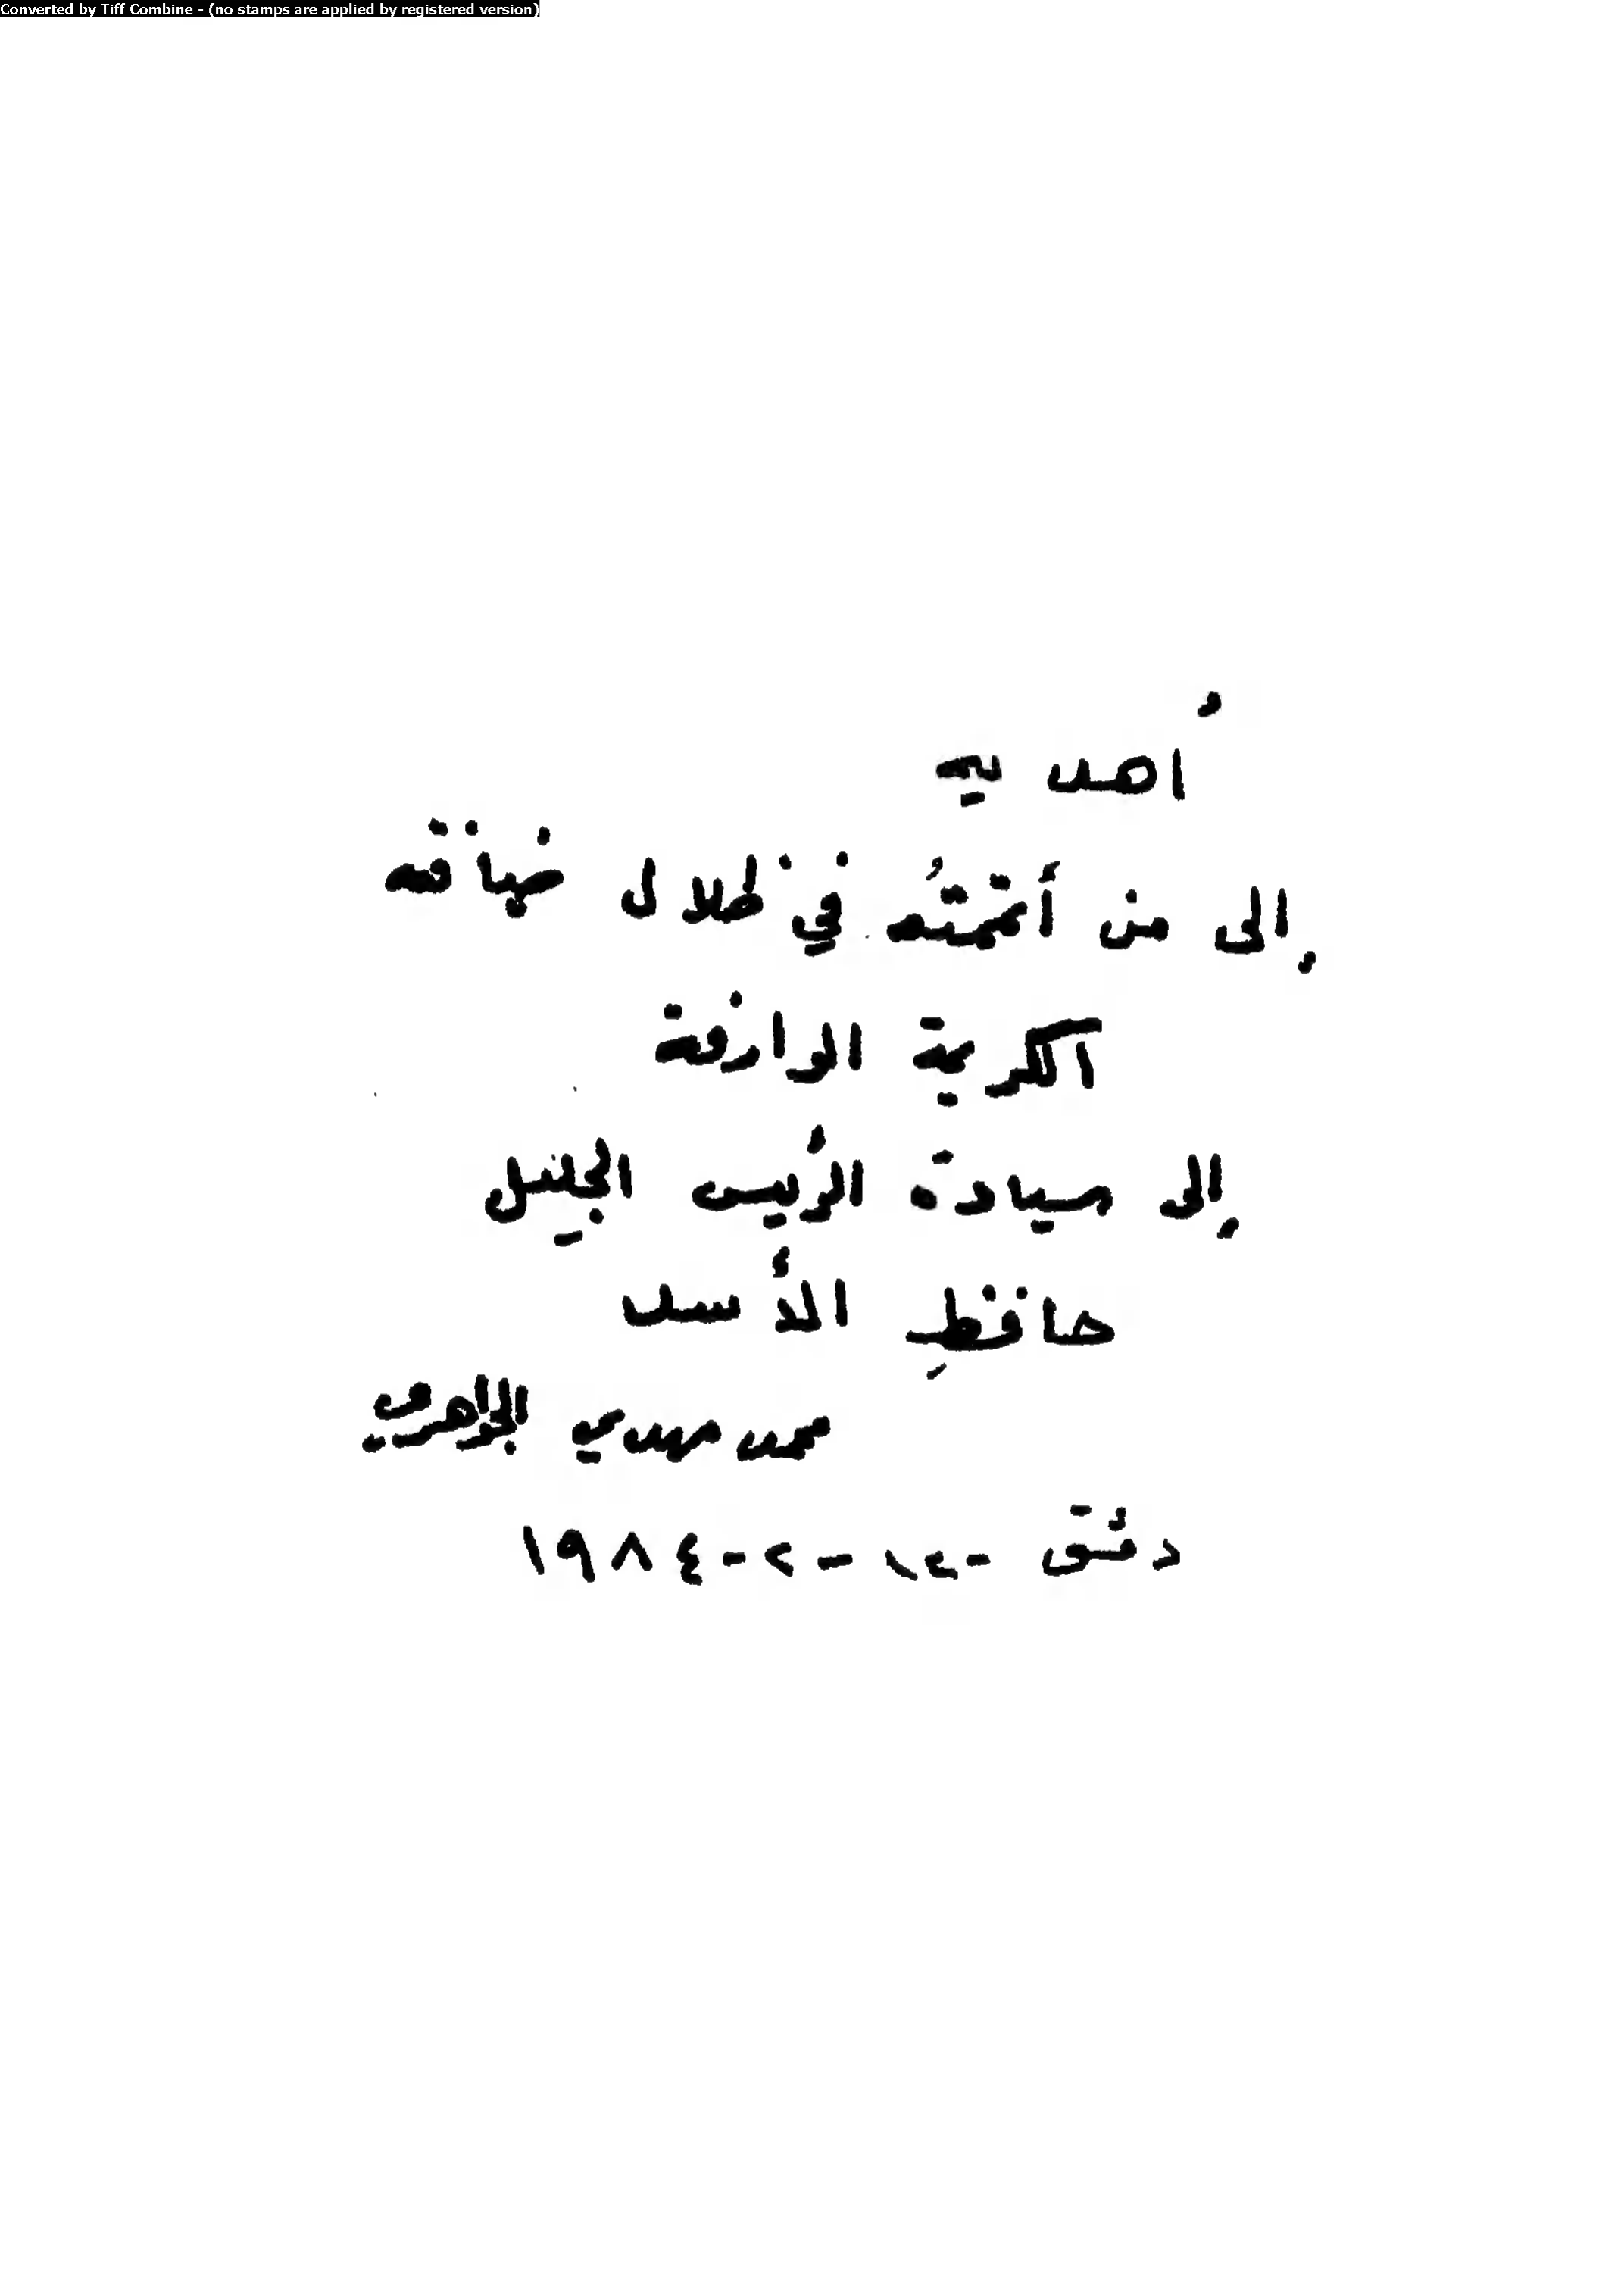 Converted by Tiff Combine - (no stamps are applied by registered version)
أُهديه
إلى من أتممتُه في ظلال ضيافته
الكريمة الوارفة
إلى سيادة الرئيس الجليل
حافظِ الأسد
محمد مهدي الجواهري
دمشق - - ٢ - ١٩٨٤